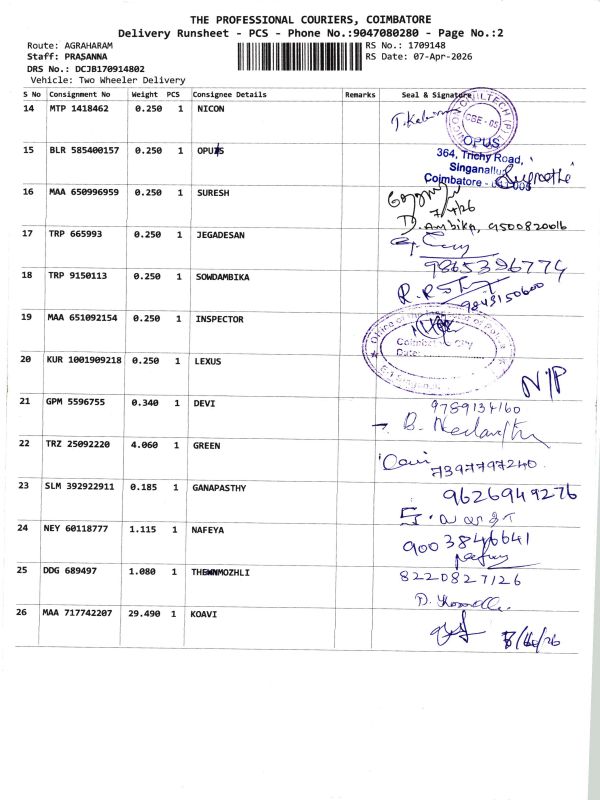 THE PROFESSIONAL COURIERS, COIMBATORE
Delivery Runsheet - PCS - Phone No.:9047080280 - Page No.:2
Route: AGRAHARAM
RS No.: 1709148
Staff: PRASANNA
RS Date: 07-Apr-2026
DRS No.: DCJB170914802
Vehicle: Two Wheeler Delivery
S No Consignment No Weight PCS Consignee Details Remarks Seal & Signature
14 MTP 1418462 0.250 1 NICON
CBE - 05
15 BLR 585400157 0.250 1 OPUS
OPUS
364, Trichy Road,
Singanallur
Coimbatore
16 MAA 650996959 0.250 1 SURESH
7/4/26
D. Ambika, 9500820616
17 TRP 665993 0.250 1 JEGADESAN
9865396774
18 TRP 9150113 0.250 1 SOWDAMBIKA
9843150600
19 MAA 651092154 0.250 1 INSPECTOR
Office of the Inspector of Police
Coimbatore City
Date:
20 KUR 1001909218 0.250 1 LEXUS
N/P
21 GPM 5596755 0.340 1 DEVI
9789134160
22 TRZ 25092220 4.060 1 GREEN
7397797240
23 SLM 392922911 0.185 1 GANAPASTHY
9626949276
24 NEY 60118777 1.115 1 NAFEYA
9003846641
25 DDG 689497 1.080 1 THENMOZHLI
8220827126
26 MAA 717742207 29.490 1 KOAVI